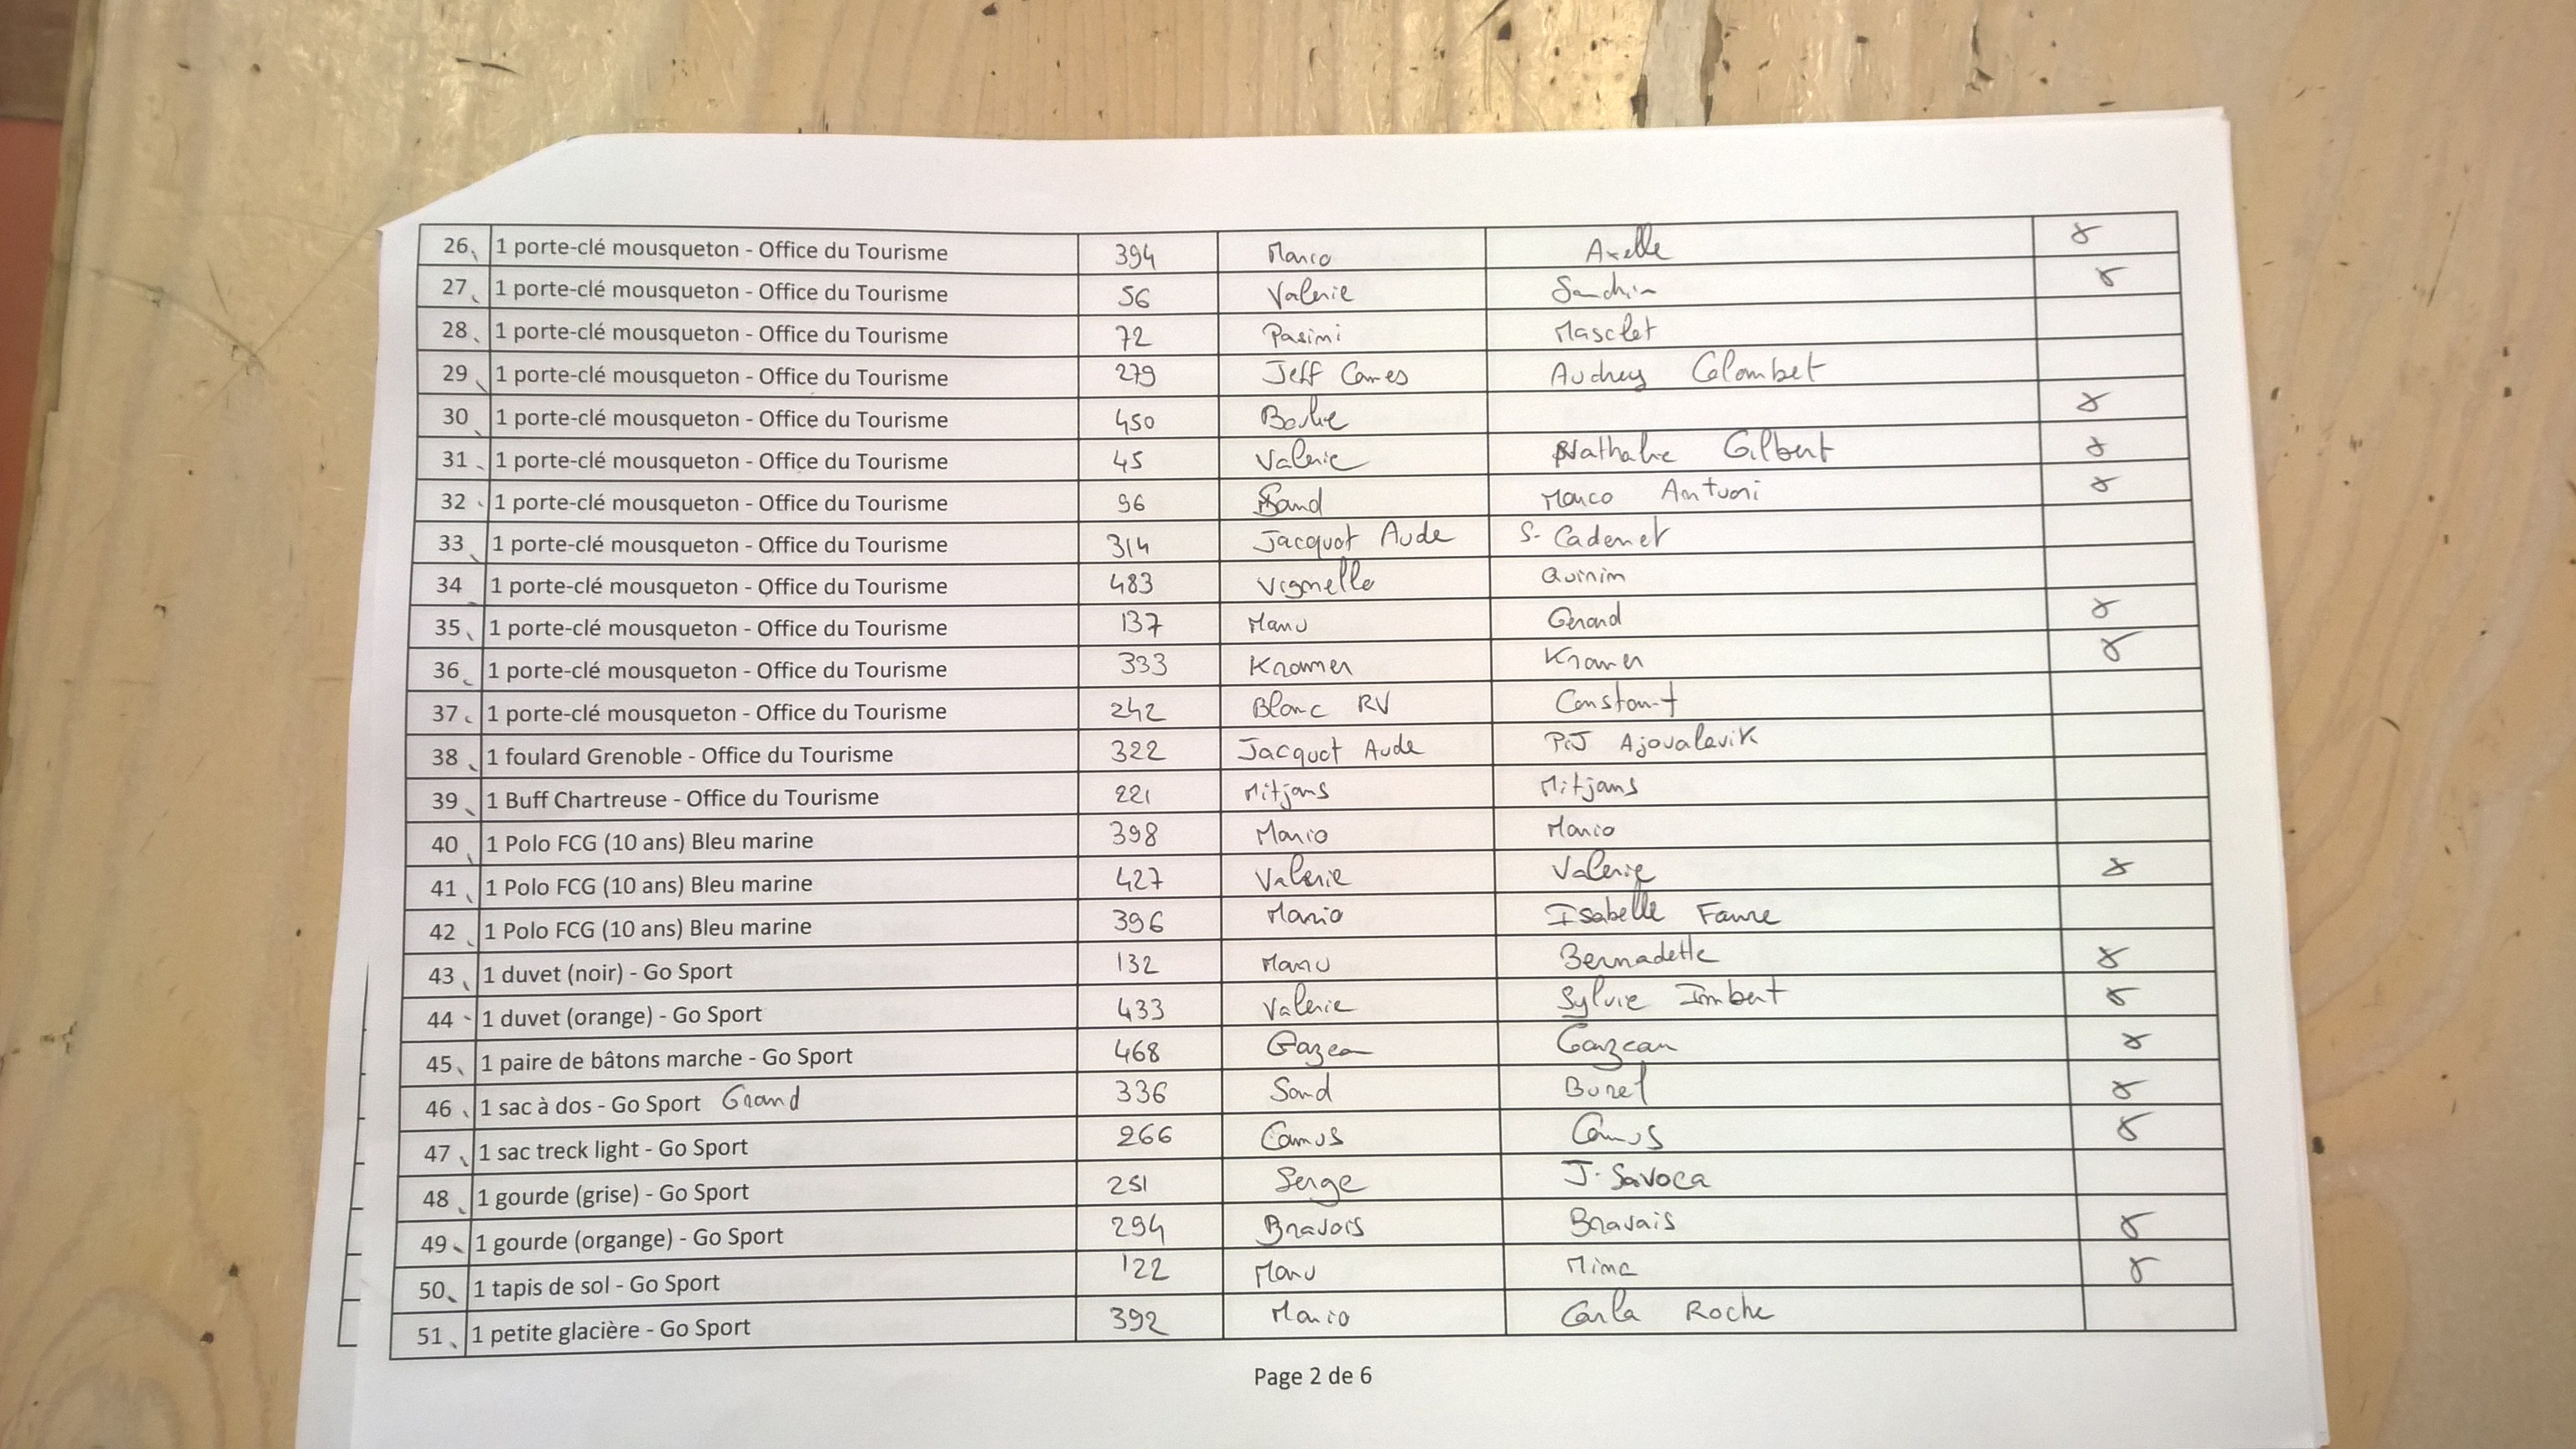 26 1 porte-clé mousqueton - Office du Tourisme 394 Marco Axelle
27 1 porte-clé mousqueton - Office du Tourisme 56 Valerie
28 1 porte-clé mousqueton - Office du Tourisme 72 Pasini Masclet
29 1 porte-clé mousqueton - Office du Tourisme 279 Jeff Audrey Colombet
30 1 porte-clé mousqueton - Office du Tourisme 450
31 1 porte-clé mousqueton - Office du Tourisme 45 Valerie Nathalie Gilbert
32 1 porte-clé mousqueton - Office du Tourisme 96 Sand Marco Antuoni
33 1 porte-clé mousqueton - Office du Tourisme 314 Jacquot Aude S. Cadenet
34 1 porte-clé mousqueton - Office du Tourisme 483 Quinin
35 1 porte-clé mousqueton - Office du Tourisme 137 Manu Gerard
36 1 porte-clé mousqueton - Office du Tourisme 333 Kramer Kramer
37 1 porte-clé mousqueton - Office du Tourisme 242 Blanc RV Constant
38 1 foulard Grenoble - Office du Tourisme 322 Jacquot Aude
39 1 Buff Chartreuse - Office du Tourisme 221 Mitjans Mitjans
40 1 Polo FCG (10 ans) Bleu marine 398 Mario Mario
41 1 Polo FCG (10 ans) Bleu marine 427 Valerie Valerie
42 1 Polo FCG (10 ans) Bleu marine 396 Mario Isabelle Faure
43 1 duvet (noir) - Go Sport 132 Manu Bernadette
44 1 duvet (orange) - Go Sport 433 Valerie Sylvie Imbert
45 1 paire de bâtons marche - Go Sport 468 Gazeau Gauzeau
46 1 sac à dos - Go Sport Grand 336 Sand Burel
47 1 sac treck light - Go Sport 266 Camus Camus
48 1 gourde (grise) - Go Sport 251 Serge J. Savoca
49 1 gourde (organge) - Go Sport 294 Bravais Bravais
50 1 tapis de sol - Go Sport 122 Manu Mima
51 1 petite glacière - Go Sport 392 Mario Carla Roche
Page 2 de 6